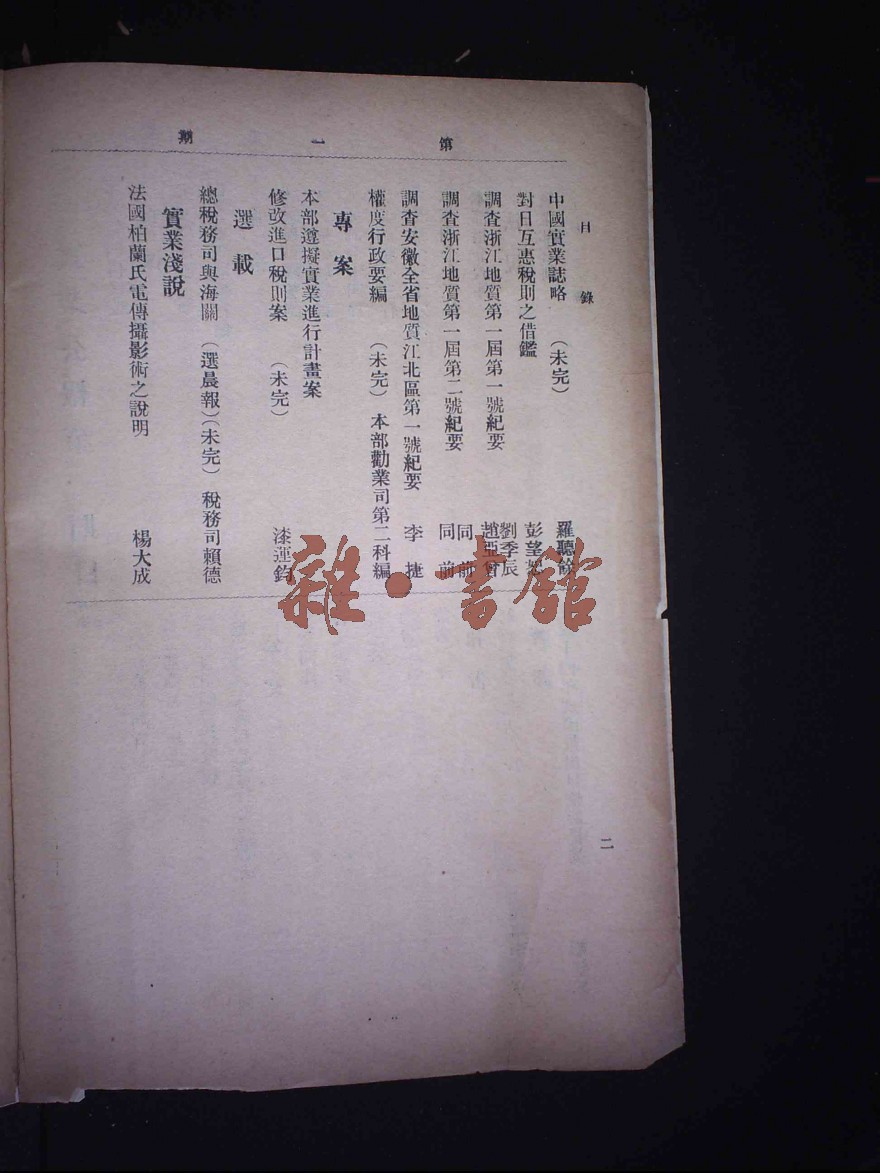 第一期
目錄
二
中國實業誌略 （未完） 羅聽餘
對日互惠稅則之借鑑 彭望恕
調查浙江地質第一屆第一號紀要 劉季辰 趙亞曾
調查浙江地質第一屆第二號紀要 同前 同前
調查安徽全省地質江北區第一號紀要 李捷
權度行政要編 （未完） 本部勸業司第二科編
專案
本部遵擬實業進行計畫案
修改進口稅則案 （未完） 漆運鈞
選載
總稅務司與海關 （選晨報）（未完） 稅務司賴德
實業淺說
法國柏蘭氏電傳攝影術之說明 楊大成
雜·書館